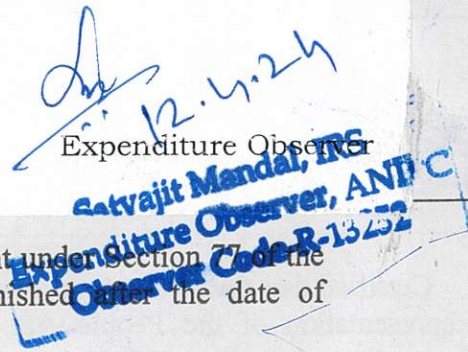 12.4.24
Expenditure Observer
Satyajit Mandal, IRS
Expenditure Observer, AND C
Observer Code R-13252
t under Section 77 of the
nished after the date of